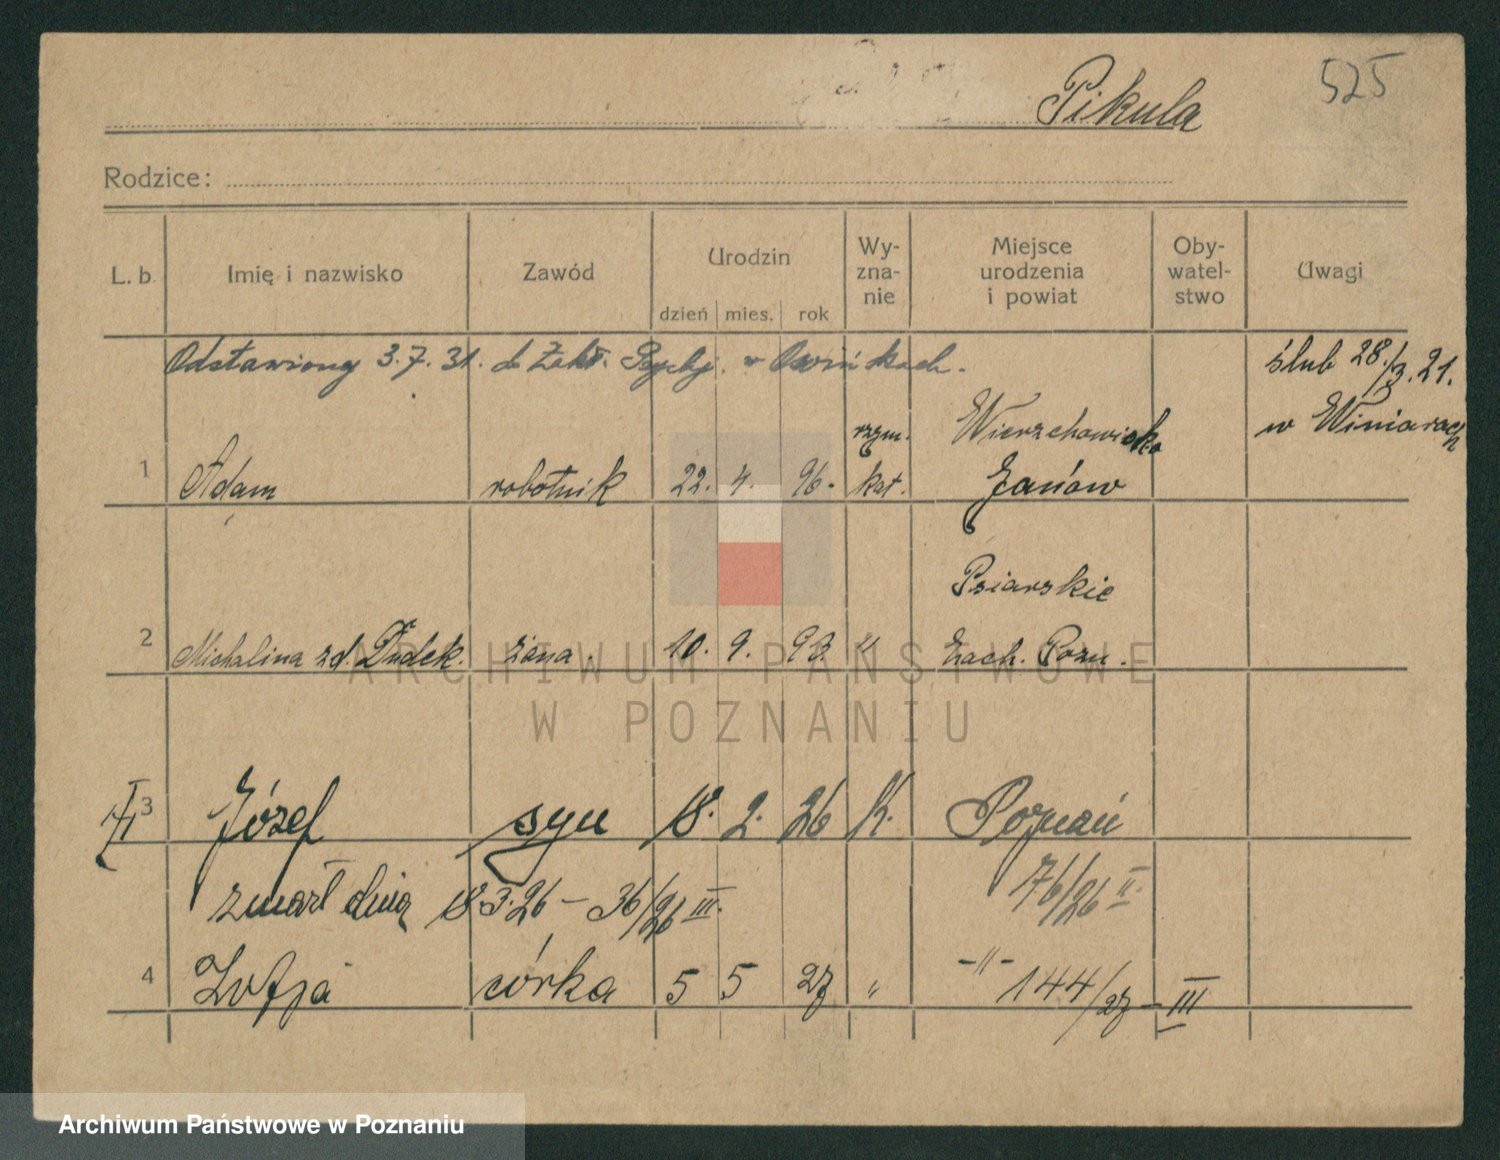 525
Pikula
Rodzice:
L. b. Imię i nazwisko Zawód Urodzin dzień mies. rok Wy-zna-nie Miejsce urodzenia i powiat Oby-watel-stwo Uwagi
Odstawiony 3.7.31. do Zakł. Psychj. w Owińskach.
ślub 28./3.21.
w Winiarach
rzym. Wierzchowisko
1 Adam robotnik 22. 4. 96. kat. Janów
Psiarskie
2 Michalina zd. Dudek. żona. 10. 9. 93. " Zach. Pozn.
3 Józef syn 18. 2. 26 K. Poznań
zmarł dnia 18.3.26 – 36/26 III. 76/26 II.
-"-
4 Zofja córka 5 5 27 " 144/27 – III
ARCHIWUM PAŃSTWOWE
W POZNANIU
Archiwum Państwowe w Poznaniu